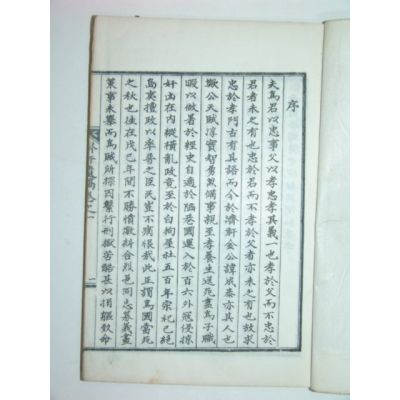 序
夫爲君以忠事父以孝忠孝其義一也孝於父而不忠於
君者未之有也忠於君而不孝於父者亦未之有也故求
忠於孝門古有其語而今於濟軒金公諱成泰亦其人也
歟公天賦淳實智勇兼備事親至孝養生送死盡爲子職
暇以做著於經史自適於陋巷國運入於百六外冦侵掠
奸凶在內縱橫亂政竟至於白狗屋社五百年宗祀已絕
島夷擅政以率普之臣民豈不痛恨哉此正謂爲國當死
之秋也徃在戊己年間不勝憤激辭合烈邑同志募義畫
策事未集而爲賊所探因繫行刑獄苦酷甚以捐軀致命